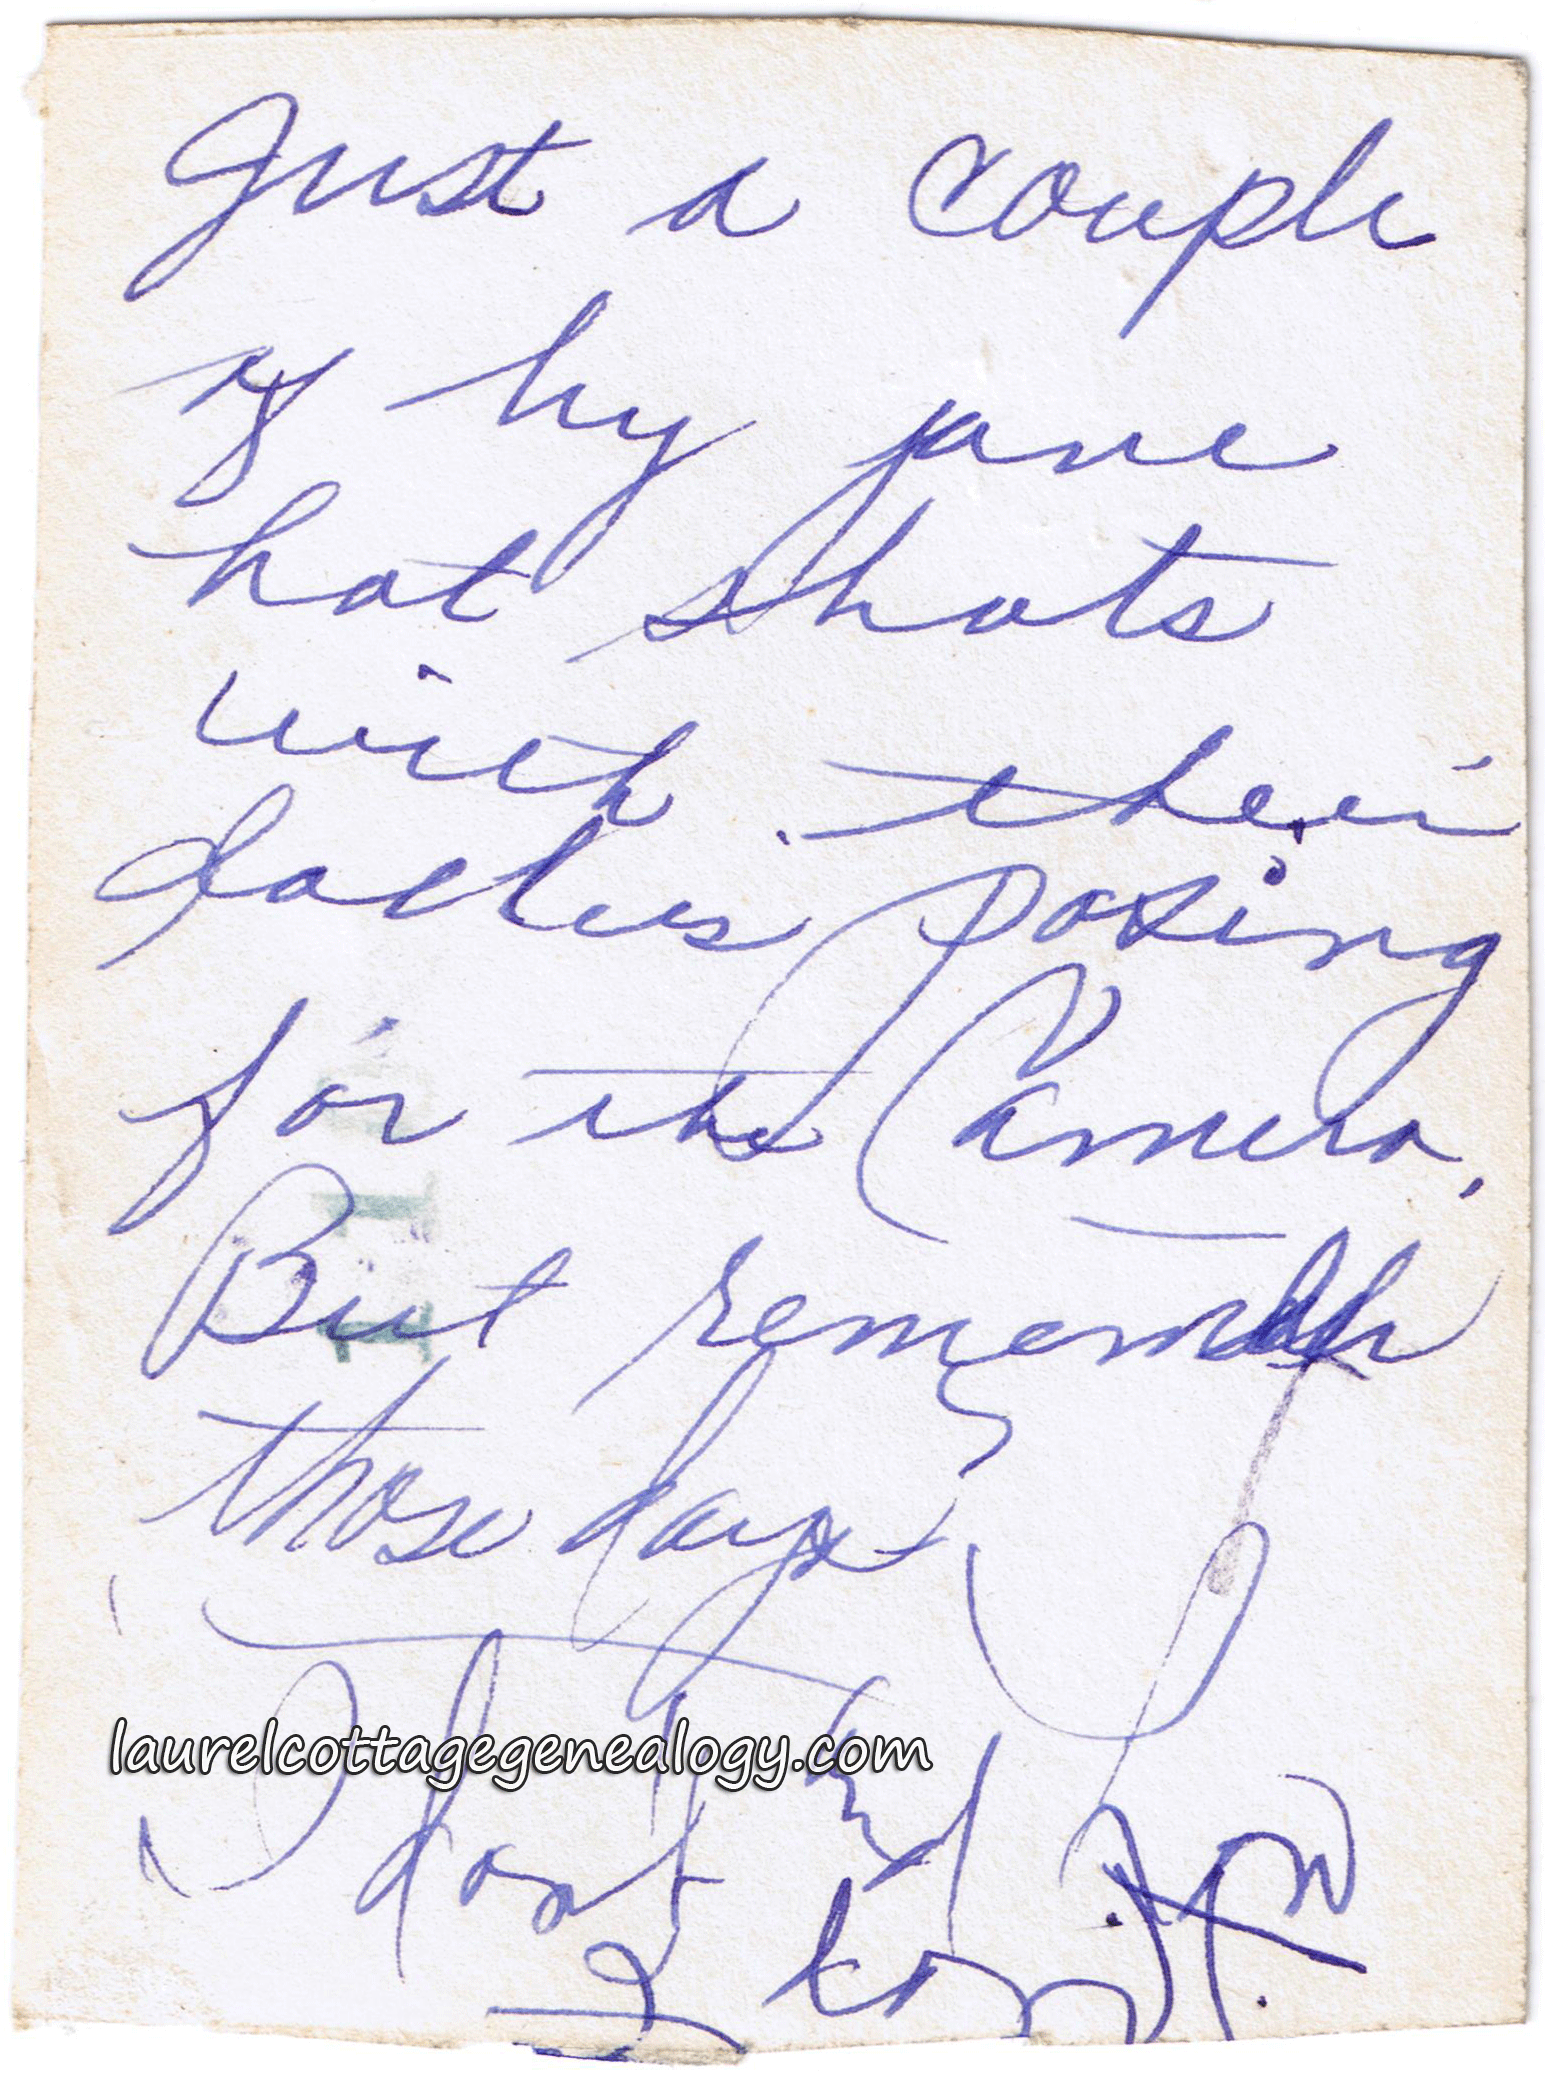 Just a couple
of by gone
hot shots
with their
posing
for the Camera.
But remember
those days
laurelcottagegenealogy.com
I dont